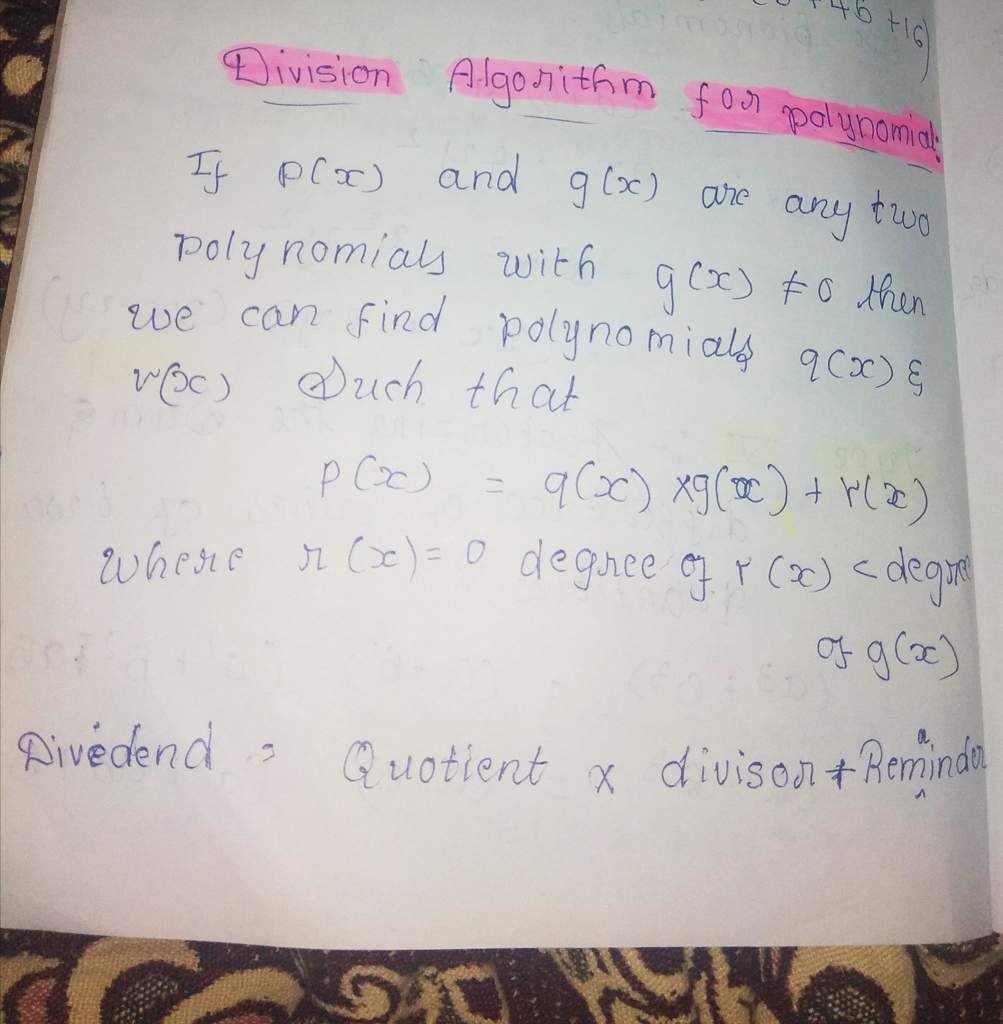 +46 +16)
Division Algorithm for polynomial:
If p(x) and g(x) are any two
polynomials with g(x) ≠ 0 then
we can find polynomials q(x) &
r(x) Such that
p(x) = q(x) × g(x) + r(x)
where r(x) = 0 degree of r(x) < degree
of g(x)
Dividend = Quotient × divisor + Remainder